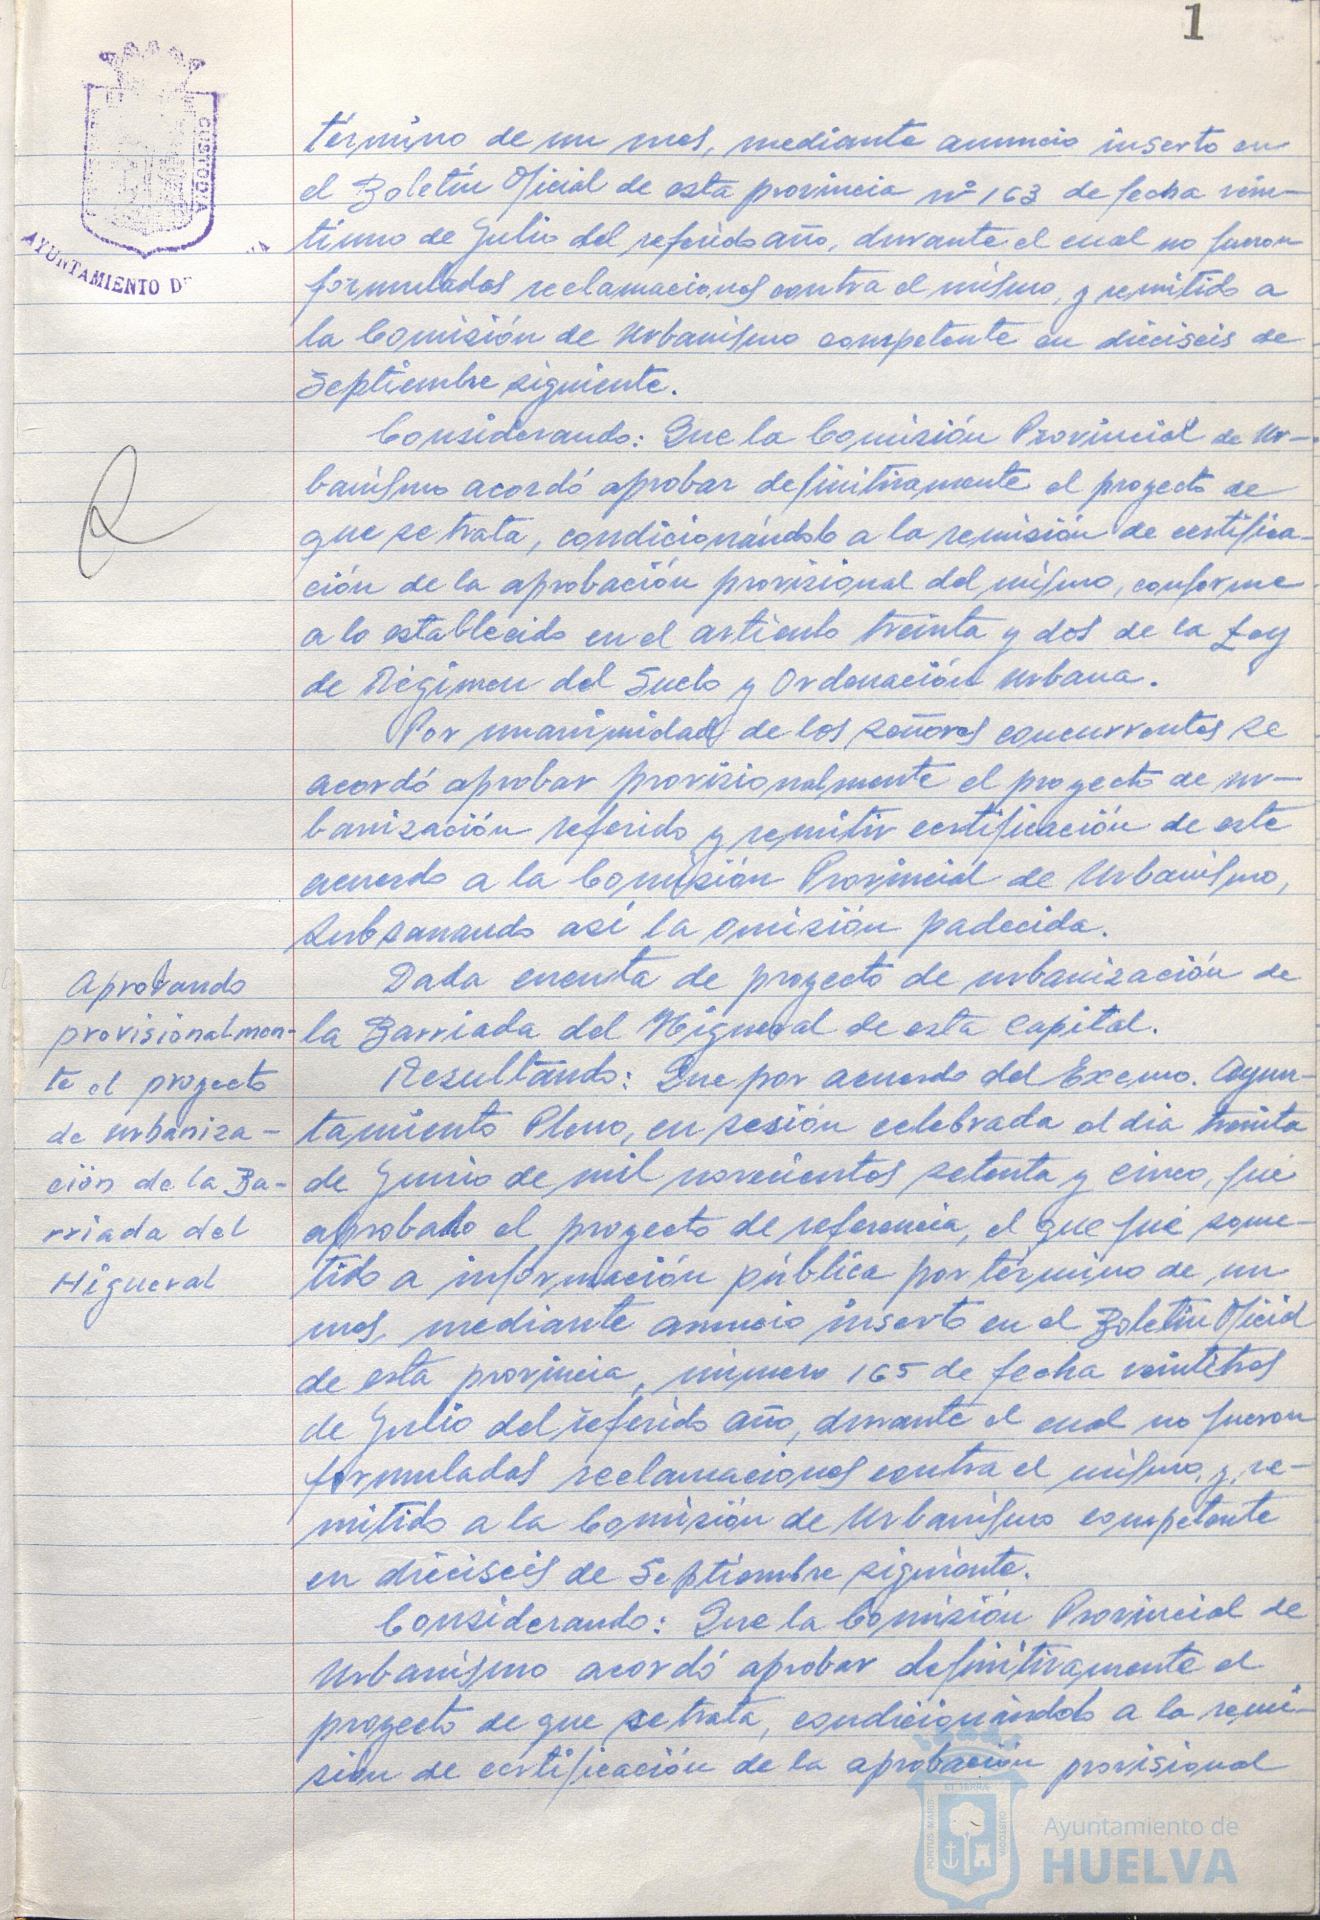 1
CUSTODIA
AYUNTAMIENTO DE
término de un mes, mediante anuncio inserto en
el Boletín Oficial de esta provincia nº 163 de fecha vein-
tiuno de Julio del referido año, durante el cual no fueron
formuladas reclamaciones contra el mismo, y remitido a
la Comisión de Urbanismo competente en dieciseis de
Septiembre siguiente.
Considerando: Que la Comisión Provincial de Ur-
banismo acordó aprobar definitivamente el proyecto de
que se trata, condicionándolo a la remisión de certifica-
ción de la aprobación provisional del mismo, conforme
a lo establecido en el artículo treinta y dos de la Ley
de Régimen del Suelo y Ordenación Urbana.
Por unanimidad de los señores concurrentes se
acordó aprobar provisionalmente el proyecto de ur-
banización referido y remitir certificación de este
acuerdo a la Comisión Provincial de Urbanismo,
subsanando así la omisión padecida.
Aprobando
provisionalmen-
te el proyecto
de urbaniza-
ción de la Ba-
rriada del
Higueral
Dada cuenta de proyecto de urbanización de
la Barriada del Higueral de esta Capital.
Resultando: Que por acuerdo del Excmo. Ayun-
tamiento Pleno, en sesión celebrada el dia treinta
de Junio de mil novecientos setenta y cinco, fué
aprobado el proyecto de referencia, el que fué some-
tido a información pública por término de un
mes, mediante anuncio inserto en el Boletín Oficial
de esta provincia, número 165 de fecha veintitres
de Julio del referido año, durante el cual no fueron
formuladas reclamaciones contra el mismo, y, re-
mitido a la Comisión de Urbanismo competente
en dieciseis de Septiembre siguiente.
Considerando: Que la Comisión Provincial de
Urbanismo acordó aprobar definitivamente el
proyecto de que se trata, condicionándolo a la remi-
sión de certificación de la aprobación provisional
PORTUS MARIS
ET TERRA
CUSTODIA
Ayuntamiento de
HUELVA